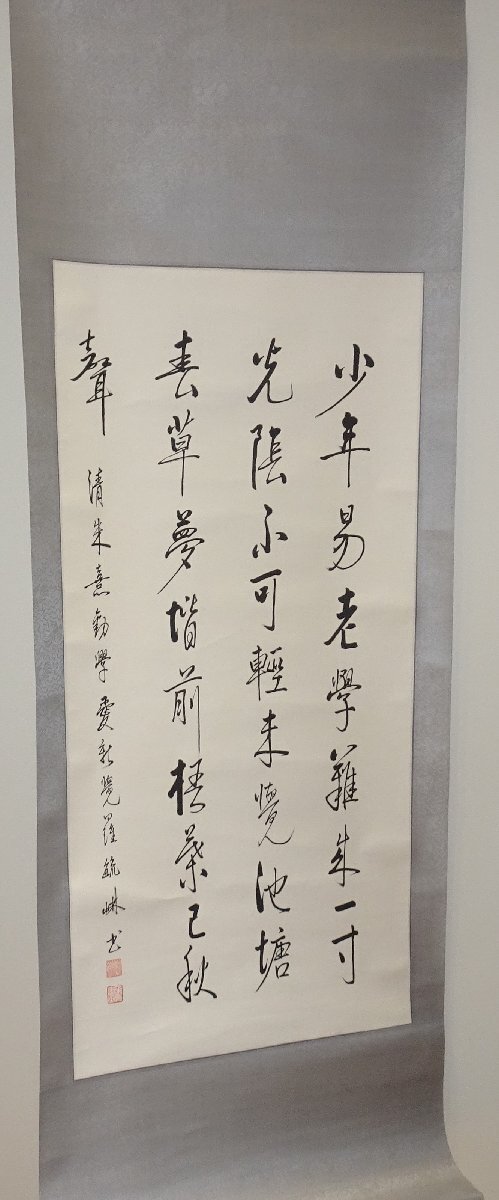 少年易老學難成一寸
光陰不可輕未覺池塘
春草夢階前梧葉已秋
聲
清朱熹勸學 愛新覺羅毓 書